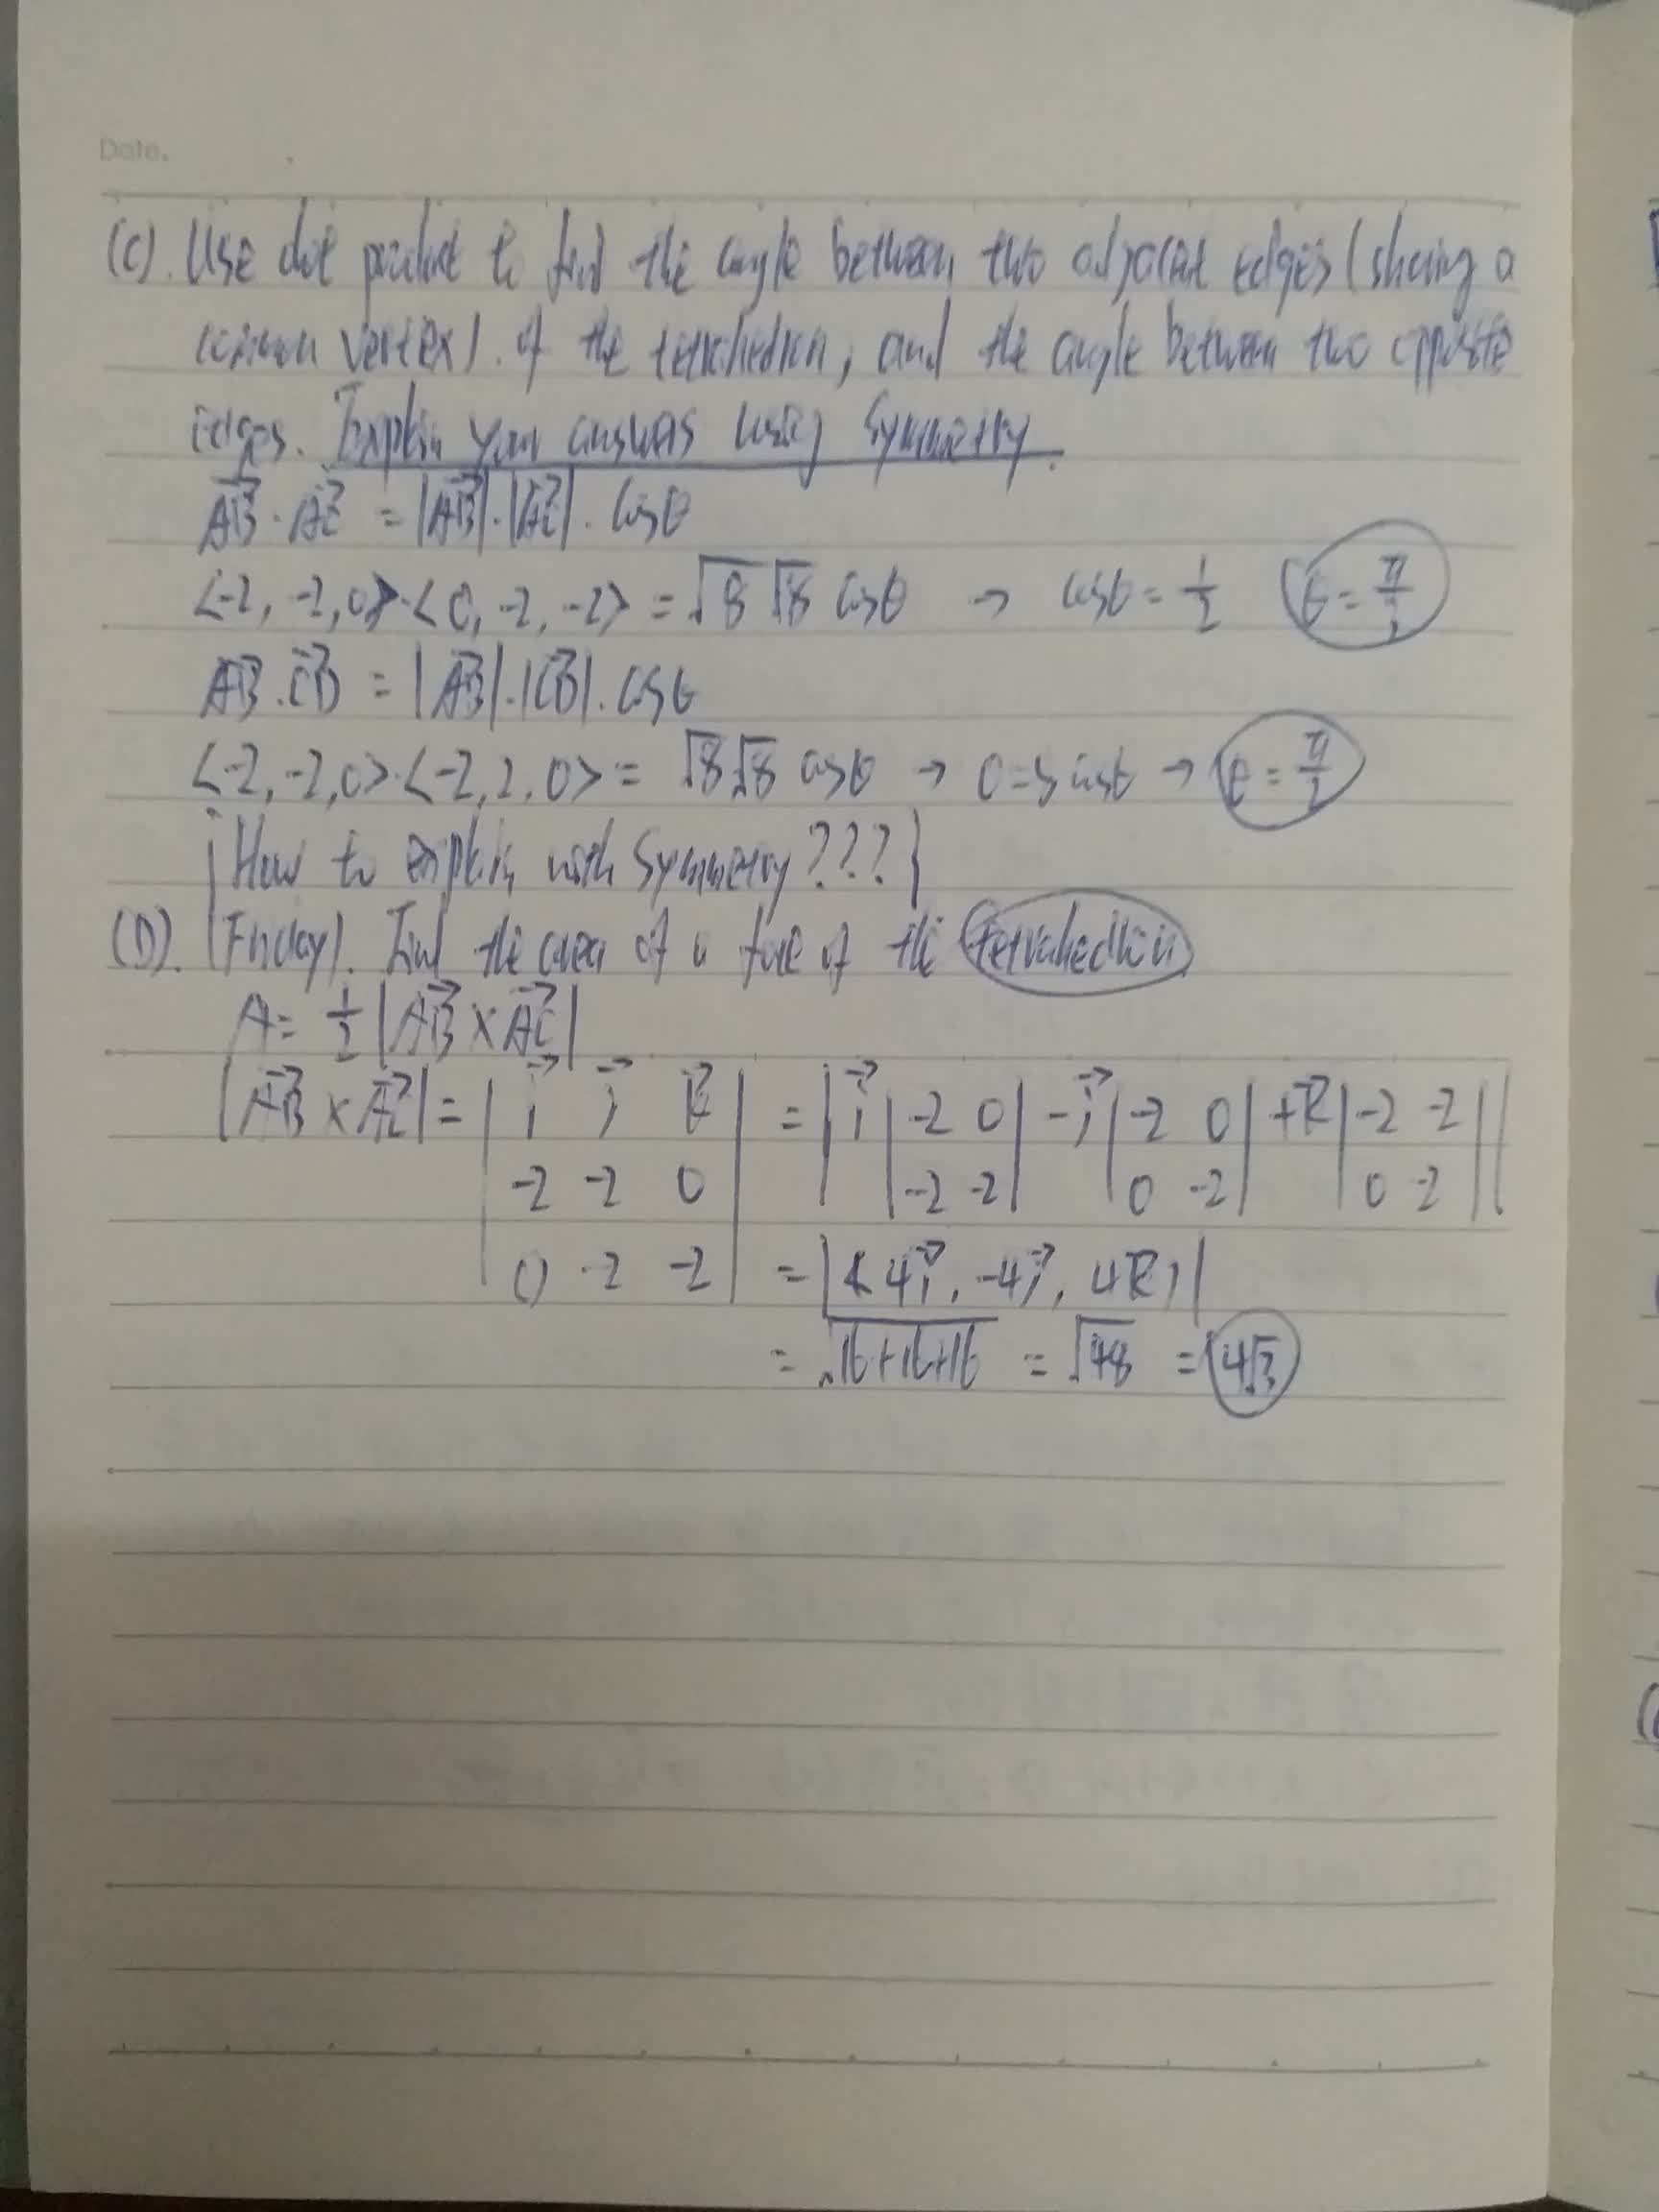 Date.
(C). Use dot product to find the angle between two adjacent edges (sharing a
common vertex). of the tetrahedron, and the angle between two opposite
edges. Explain your answers using Symmetry.
AB→ · AC→ = |AB→| · |AC→| · cosθ
<-2, -2, 0> · <0, -2, -2> = √8 √8 cosθ → cosθ = 1/2 θ = π/3
AB→ · CD→ = |AB→| · |CD→| · cosθ
<-2, -2, 0> · <-2, 2, 0> = √8 √8 cosθ → 0 = 8 cosθ → θ = π/2
{How to explain with Symmetry???}
(D). (Friday). Find the area of a face of the tetrahedron
A = 1/2 |AB→ × AC→|
|AB→ × AC→| = | i→ j→ k→ | = | i→ | -2 0 | - j→ | -2 0 | + k→ | -2 -2 | |
-2 -2 0 | -2 -2 | | 0 -2 | | 0 -2 |
0 -2 -2 = |< 4i→, -4j→, 4k→ >|
= √16+16+16 = √48 = 4√3